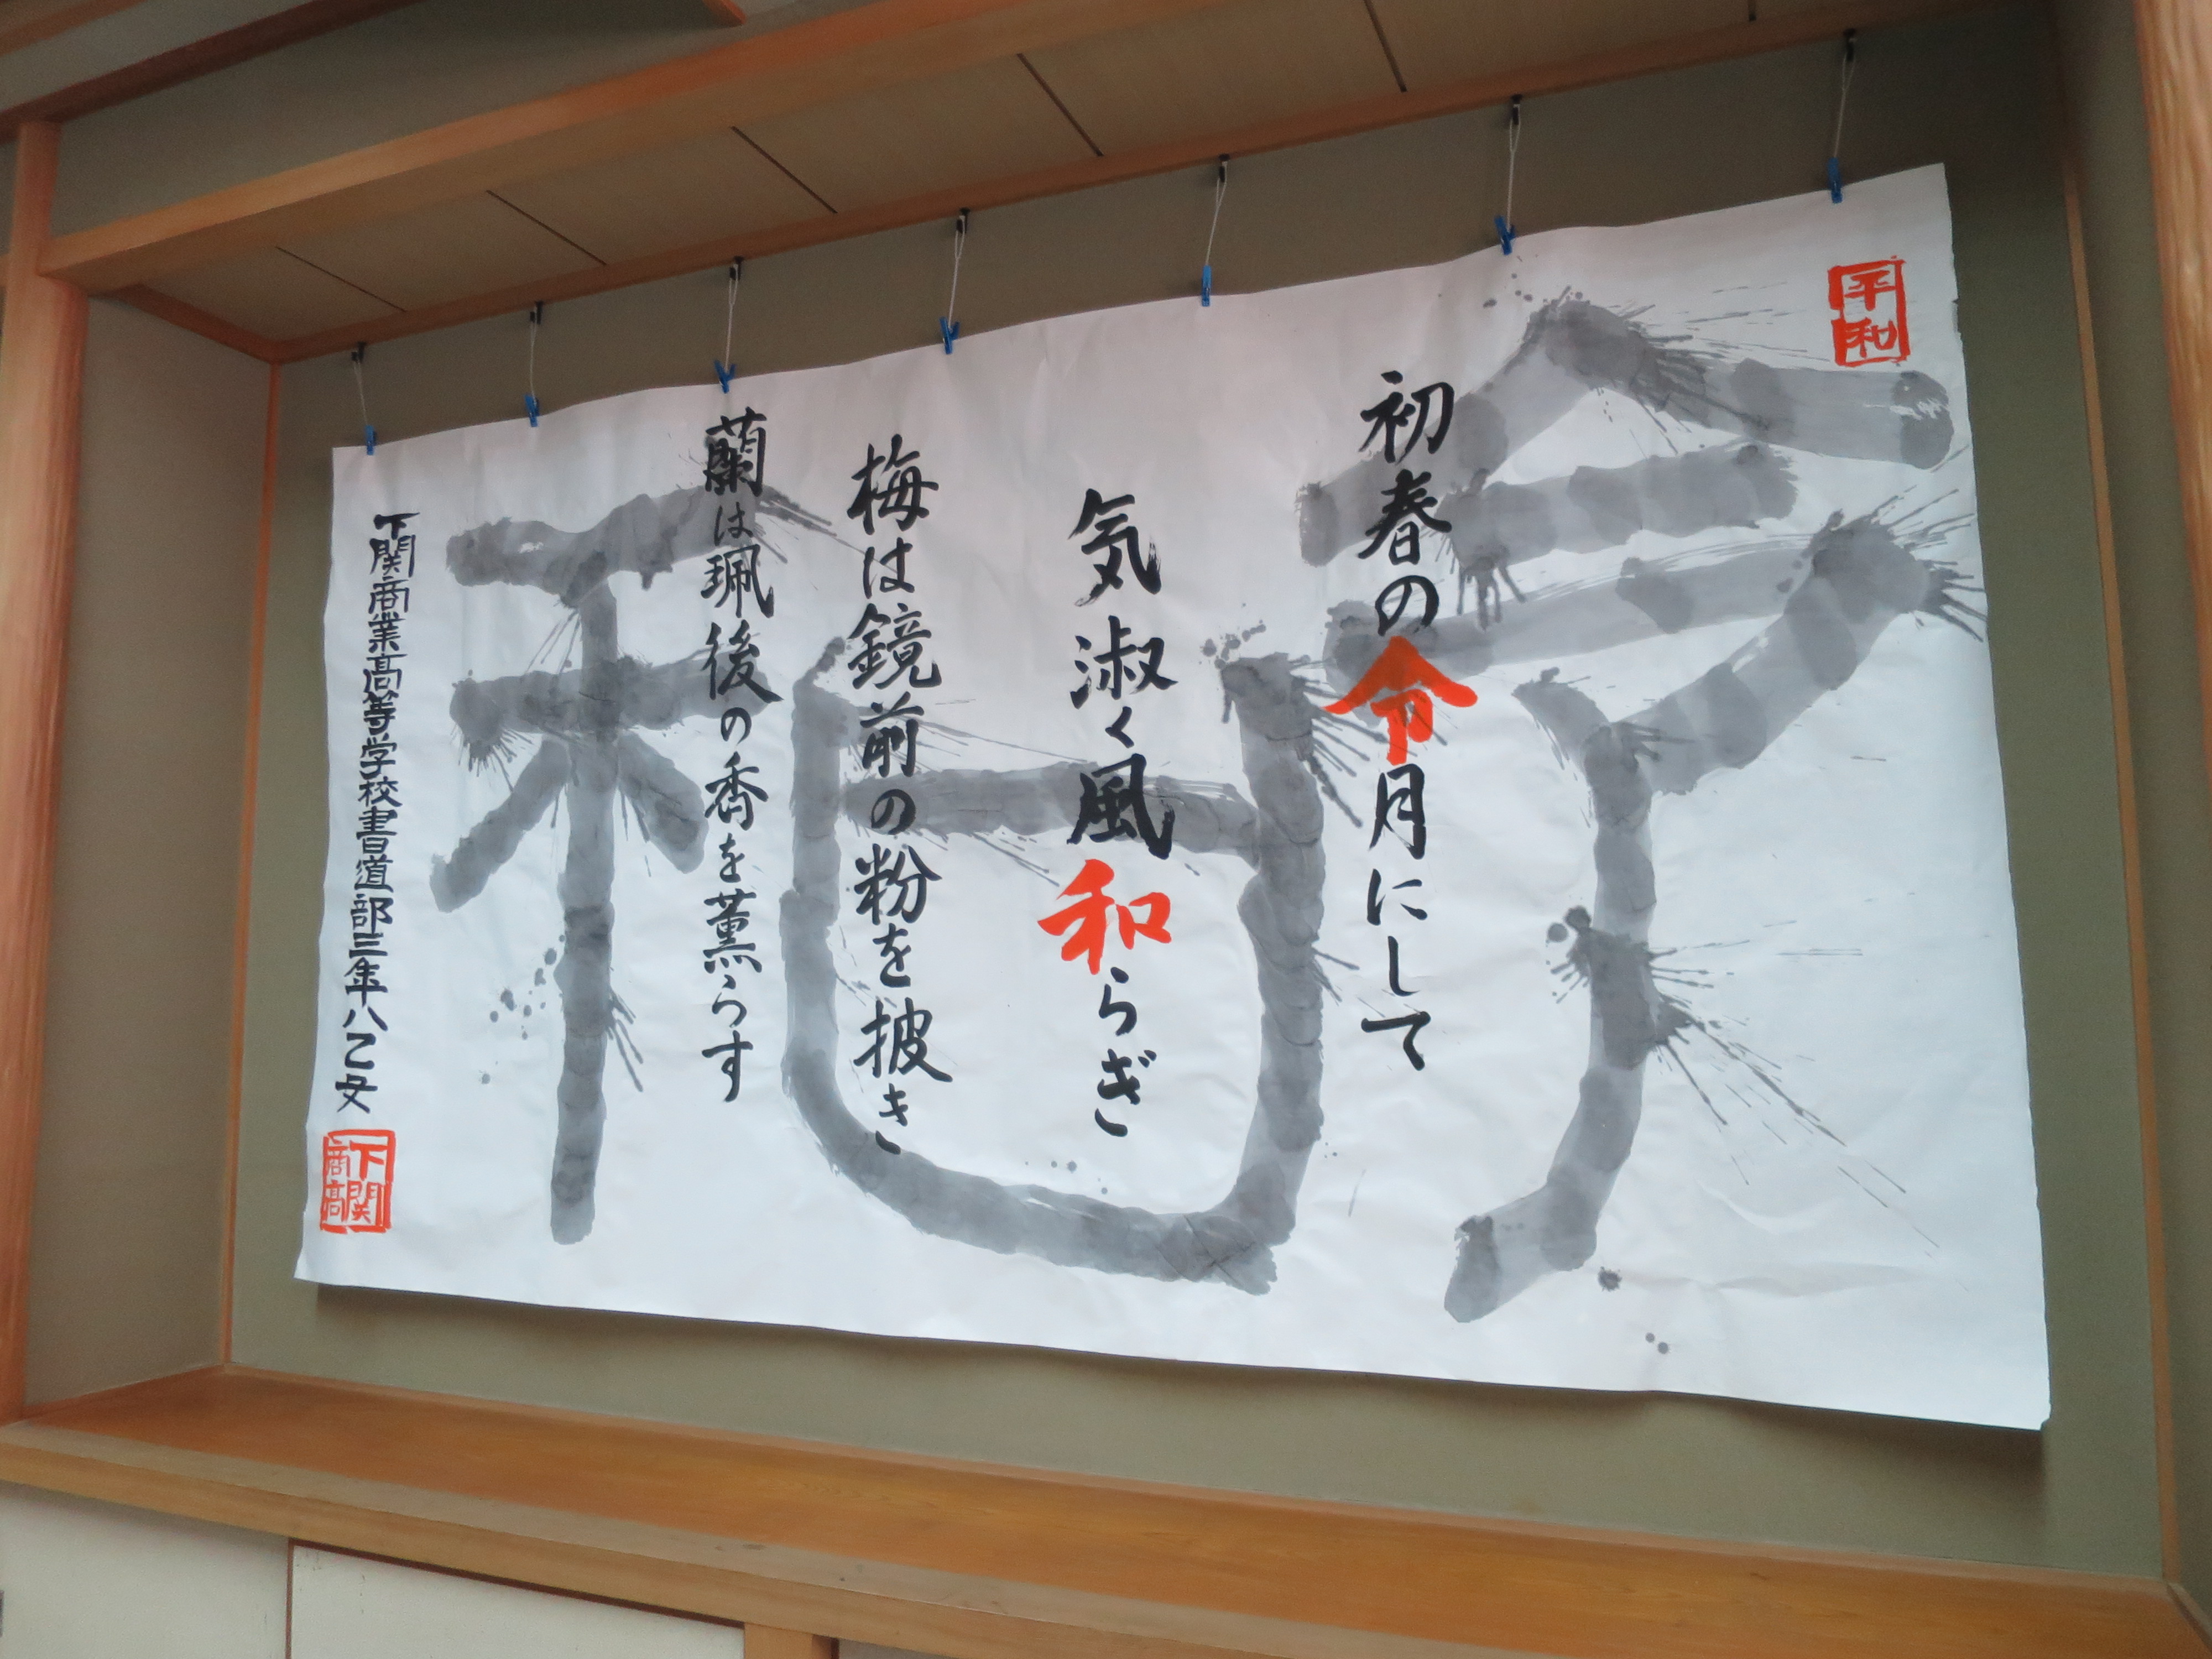 平和
令和
初春の令月にして
気淑く風和らぎ
梅は鏡前の粉を披き
蘭は珮後の香を薫らす
下関商業高等学校書道部三年八乙女
下関商高